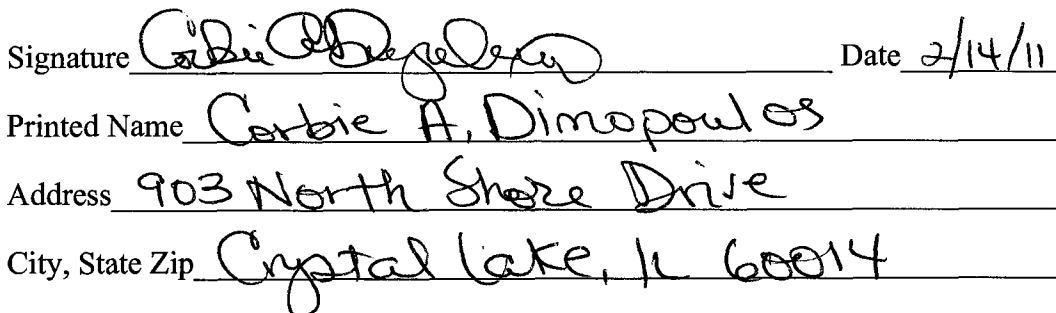 Signature Corbie A Date 2/14/11
Printed Name Corbie A. Dimopoulos
Address 903 North Shore Drive
City, State Zip Crystal Lake, IL 60014